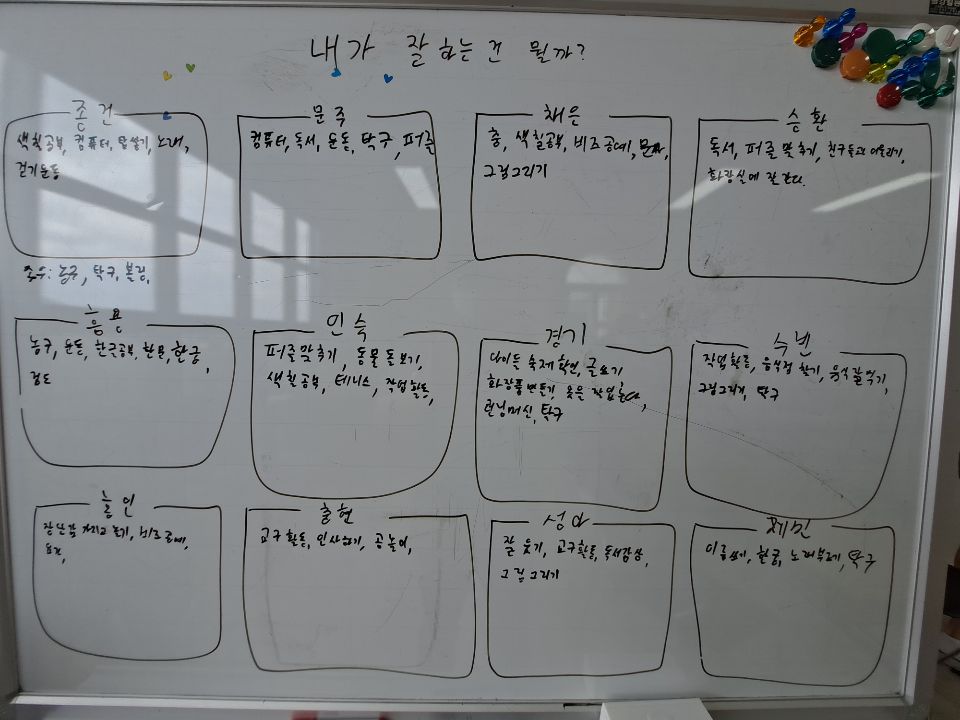 내가 잘하는건 뭘까?
종건
색칠공부, 컴퓨터, 노래,
걷기운동
문주
컴퓨터, 독서, 운동, 탁구, 퍼즐
채은
춤, 색칠공부, 비즈공예,
그림그리기
승환
독서, 퍼즐맞추기, 친구들과 어울리기,
화장실에 잘 간다.
농구, 탁구, 볼링,
흥용
농구, 운동, 한글공부, 한문, 한궁,
검도
인숙
퍼즐맞추기, 동물돌보기,
색칠공부, 테니스, 작업활동,
경기
글쓰기
런닝머신, 탁구
수년
작업활동, 음식점 찾기, 음식잘먹기,
그림그리기, 탁구
홍인
장난감 가지고 놀기, 비즈공예,
출현
교구활동, 인사하기, 공놀이,
성아
잘 웃기, 교구활동, 독서감상,
그림그리기
제민
이름쓰기, 한궁, 노래부르기, 탁구